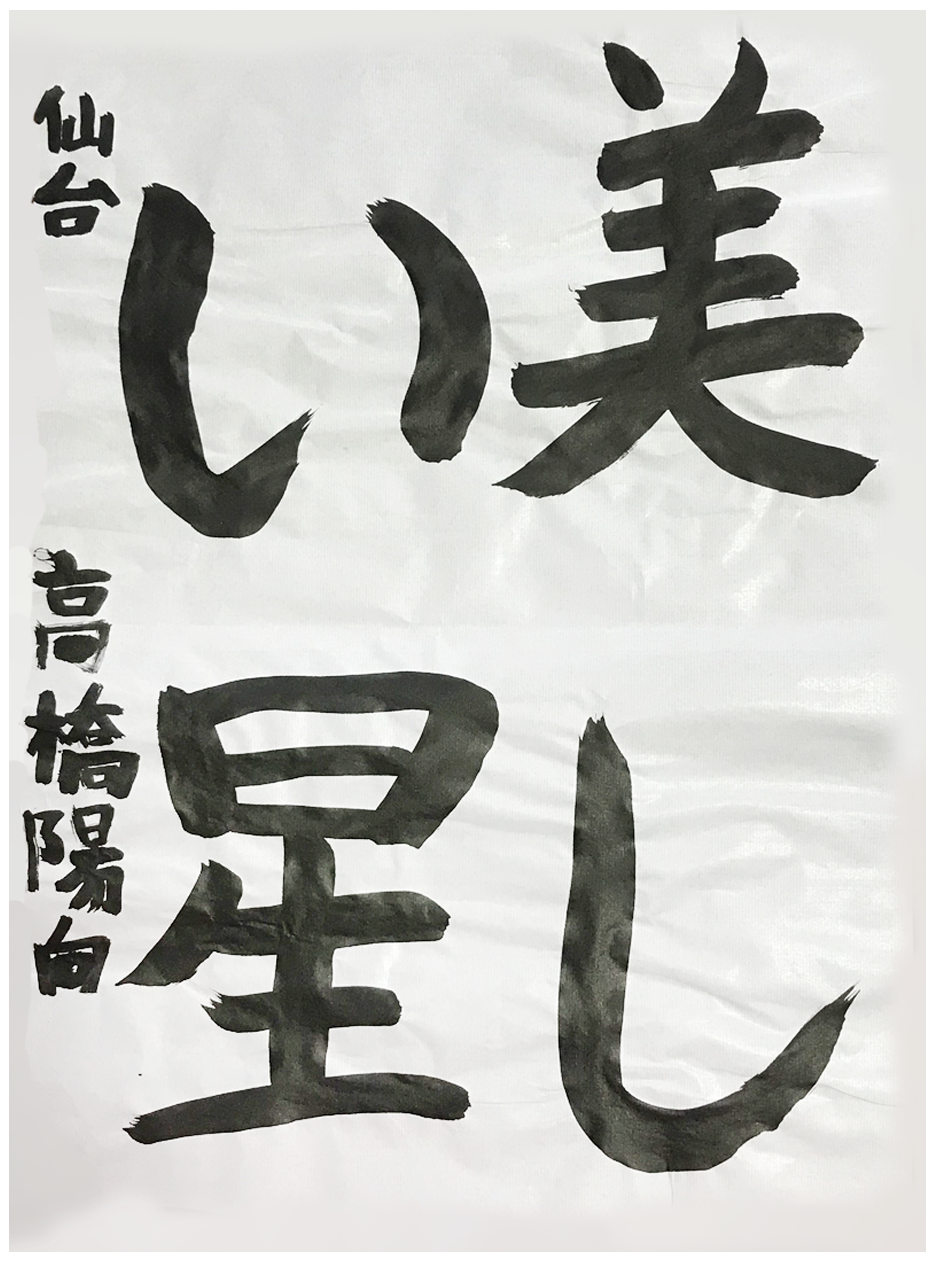 美し
い星
仙台 高橋陽向